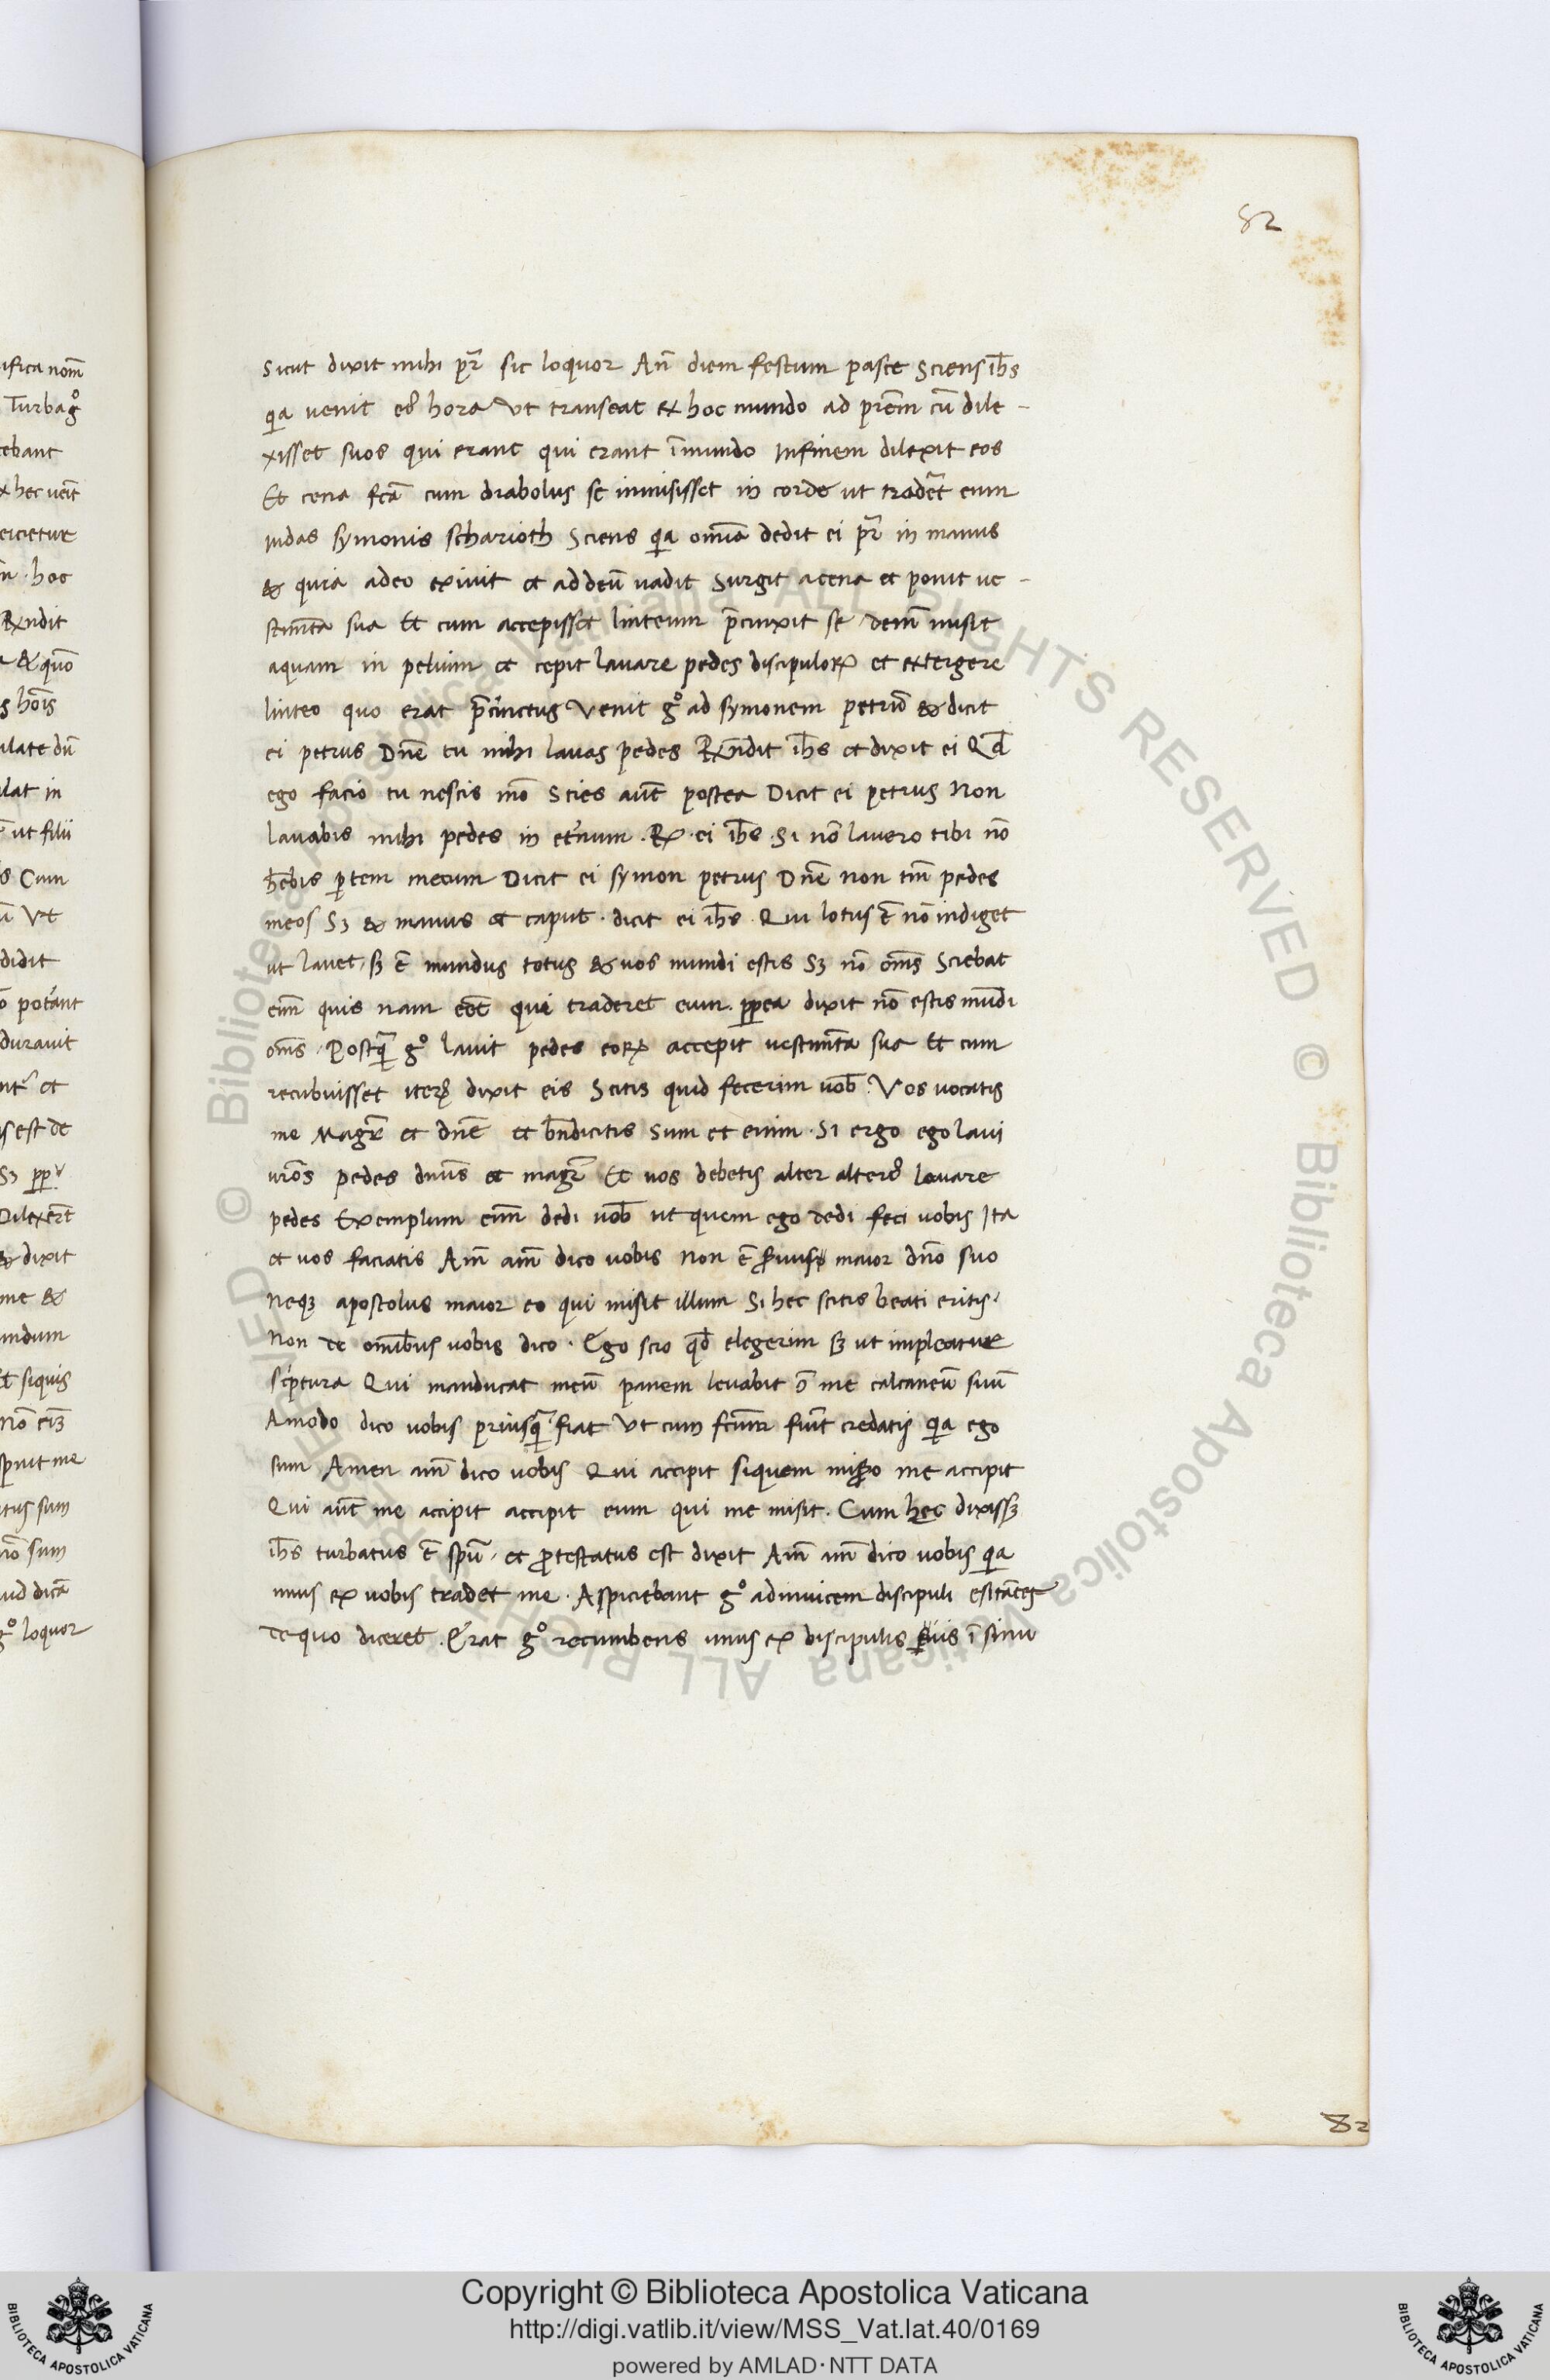 82
ifica nom̄
Turba gͦ
ebant
hec ueīt
eicietur
hoc
R̄ndit
& quō
hoīs
ulate dū
lat in
ut filii
Cum
Vt
didit
potāant
durauit
et
est de
Sꝫ ꝓp
Dilexer̄t
& dixit
me &
undum
Et siquis
nō eiꝫ
spnit me
tus sum
nō sum
uid dicā
gͦ loquor
Sicut dixit mihi pr̄ sic loquor An̄ diem festum pasce Sciens ih̄s
qͥa uenit eiꝰ hora Vt transeat ex hoc mundo ad prēm cū dile-
xisset suos qui erant qui erant ī mundo Infinem dilexit eos
Et cena fcā cum diabolus se inmisisset in corde ut tradēt eum
iudas symonis scharioth Sciens qͥa om̄ia dedit ei pr̄ in manus
& quia adeo exiuit et ad deū uadit Surgit acena et ponit ue-
stimn̄ta sua Et cum accepisset linteum p̄cinxit se dein̄ misit
aquam in peluim et cepit lauare pedes discipuloꝝ et extergere
linteo quo erat p̄cinctus Venit gͦ ad symonem petrū & dicit
ei petrus Dn̄e tu mihi lauas pedes R̄ndit ih̄s et dixit ei Qd̄
ego facio tu nescis mō Scies aūt postea Dicit ei petrus Non
lauabis mihi pedes in et̄num. R. ei ih̄s. Si nō lauero tibi nō
h̄ebis ꝑtem mecum Dicit ei symon petrus Dn̄e non tm̄ pedes
meos Sꝫ & manus et caput. dicit ei ih̄s. Qui lotus ē nō indiget
ut lauet, sꝫ ē mundus totus & uos mundi estis Sꝫ nō om̄s Sciebat
em̄ quis nam eēt qui traderet eum ꝓpea dixit nō estis mūdi
om̄s. Postqͣ̄ gͦ lauit pedes eoꝝ accepit uestimn̄ta sua Et cum
recubuisset iteꝝ dixit eis Scitis quid fecerim uob̄. Vos uocatis
me Magr̄ et dn̄e et bn̄dicitis Sum et enim. Si ergo ego laui
ur̄os pedes dn̄us et magr̄ Et uos debetis alter alteriꝰ lauare
pedes Exemplum em̄ dedi uob̄ ut quem ego dedi feci uobis Ita
et uos faciatis Am̄ am̄ dico uobis Non ē seruus maior dn̄o suo
Neqꝫ apostolus maior eo qui misit illum Si hec scitis beati eritis.
Non de om̄ibus uobis dico. Ego scio qd̄ elegerim sꝫ ut impleatur
scp̄tura Qui manducat meū panem leuabit ꝯ̄ me calcaneū suū
Amodo dico uobis priusqͣ̄ fiat Vt cum fcūm fūit credatis qͥa ego
sum Amen am̄ dico uobis Qui accipit siquem misero me accipit
Qui aūt me accipit accipit eum qui me misit. Cum hec dixissꝫ
ih̄s turbatus ē spū. et ꝓtestatus est dixit Am̄ am̄ dico uobis qͥa
unus ex uobis tradet me. Aspiciebant gͦ adinuicem discipuli esitātes
De quo diceret. Erat gͦ recumbens unus ex discipulis eius ī sinu
82
© Biblioteca Apostolica Vaticana ALL RIGHTS RESERVED
© Biblioteca Apostolica Vaticana ALL RIGHTS RESERVED
Copyright © Biblioteca Apostolica Vaticana
http://digi.vatlib.it/view/MSS_Vat.lat.40/0169
powered by AMLAD·NTT DATA
BIBLIOTECA APOSTOLICA VATICANA
BIBLIOTECA APOSTOLICA VATICANA